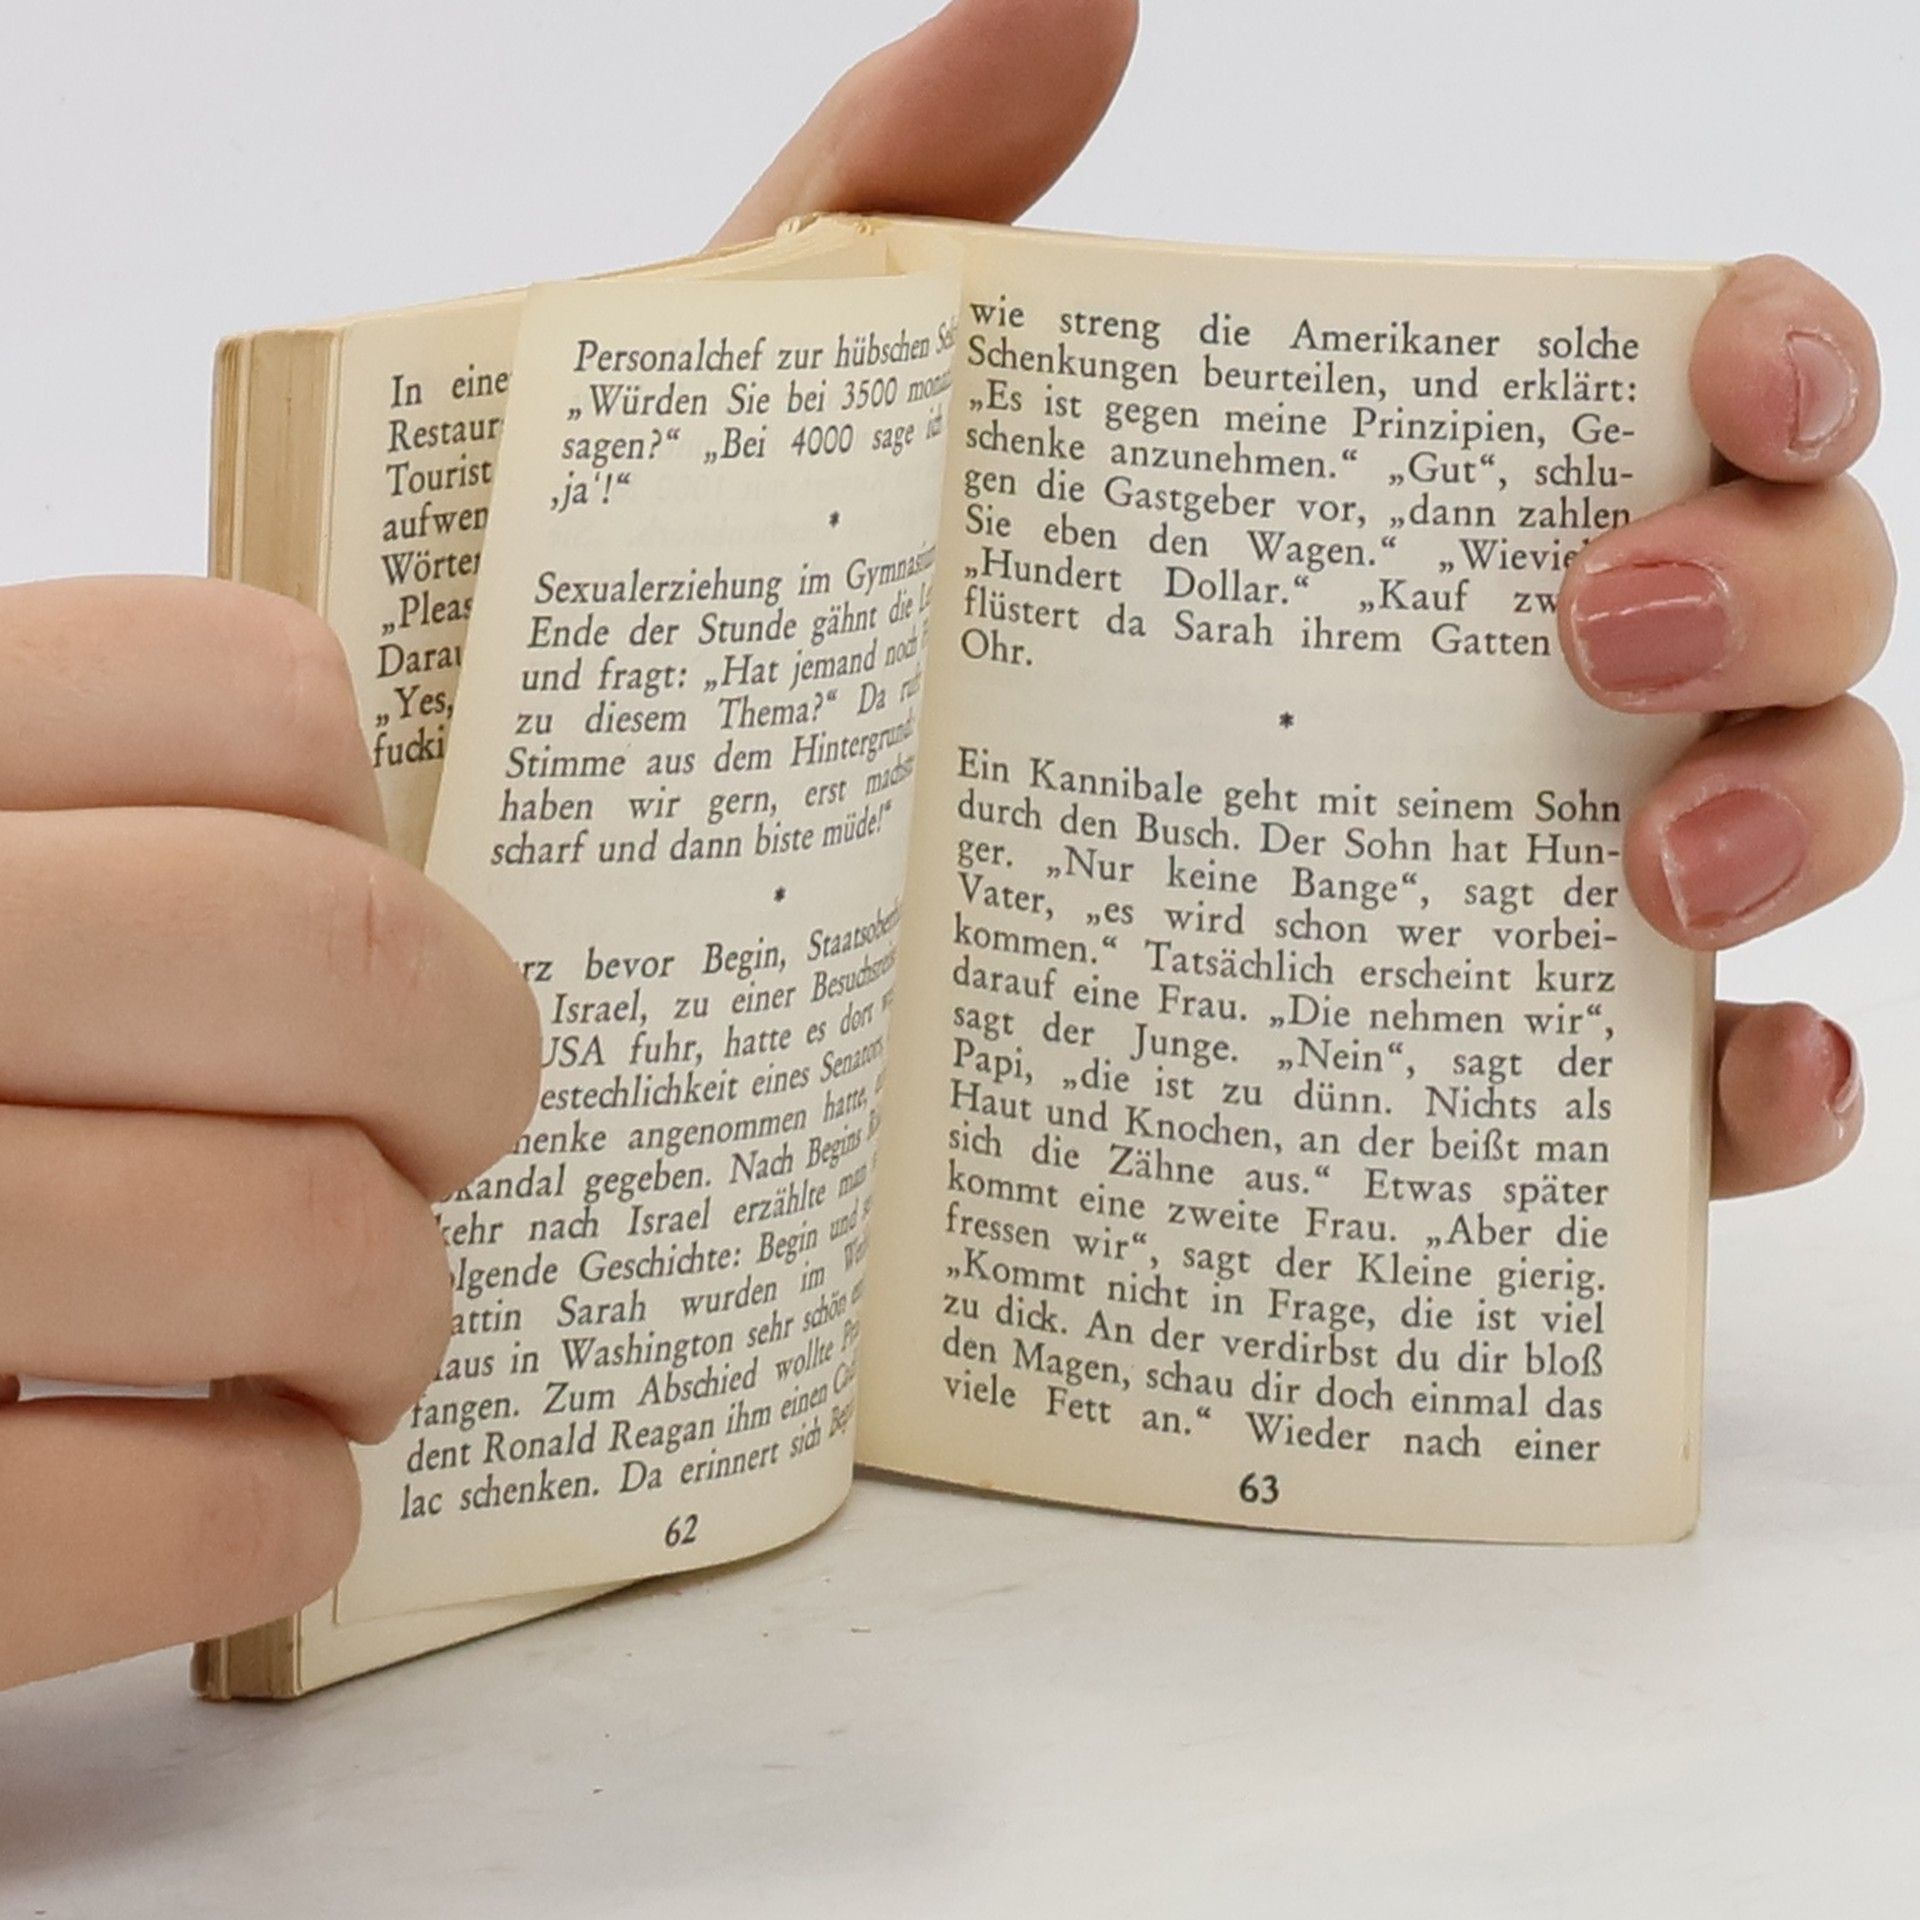 In eine
Restaur
Tourist
aufwen
Wörter
„Pleas
Darau
„Yes,
fucki
Personalchef zur hübschen
„Würden Sie bei 3500
sagen?“ „Bei 4000 sage ich
‚ja‘!“
*
Sexualerziehung im Gymnasium
Ende der Stunde gähnt die
und fragt: „Hat jemand noch
zu diesem Thema?“ Da
Stimme aus dem Hintergrund
haben wir gern, erst machste
scharf und dann biste müde!“
*
rz bevor Begin,
Israel, zu einer
USA fuhr, hatte es dort
estechlichkeit eines Senators
henke angenommen hatte,
kandal gegeben. Nach Begins
kehr nach Israel erzählte man
olgende Geschichte: Begin und
attin Sarah wurden im
aus in Washington sehr schön
fangen. Zum Abschied wollte
dent Ronald Reagan ihm einen
lac schenken. Da erinnert sich
62
wie streng die Amerikaner solche
Schenkungen beurteilen, und erklärt:
„Es ist gegen meine Prinzipien, Ge-
schenke anzunehmen.“ „Gut“, schlu-
gen die Gastgeber vor, „dann zahlen
Sie eben den Wagen.“ „Wievie
„Hundert Dollar.“ „Kauf zw
flüstert da Sarah ihrem Gatten
Ohr.
*
Ein Kannibale geht mit seinem Sohn
durch den Busch. Der Sohn hat Hun-
ger. „Nur keine Bange“, sagt der
Vater, „es wird schon wer vorbei-
kommen.“ Tatsächlich erscheint kurz
darauf eine Frau. „Die nehmen wir“,
sagt der Junge. „Nein“, sagt der
Papi, „die ist zu dünn. Nichts als
Haut und Knochen, an der beißt man
sich die Zähne aus.“ Etwas später
kommt eine zweite Frau. „Aber die
fressen wir“, sagt der Kleine gierig.
„Kommt nicht in Frage, die ist viel
zu dick. An der verdirbst du dir bloß
den Magen, schau dir doch einmal das
viele Fett an.“ Wieder nach einer
63